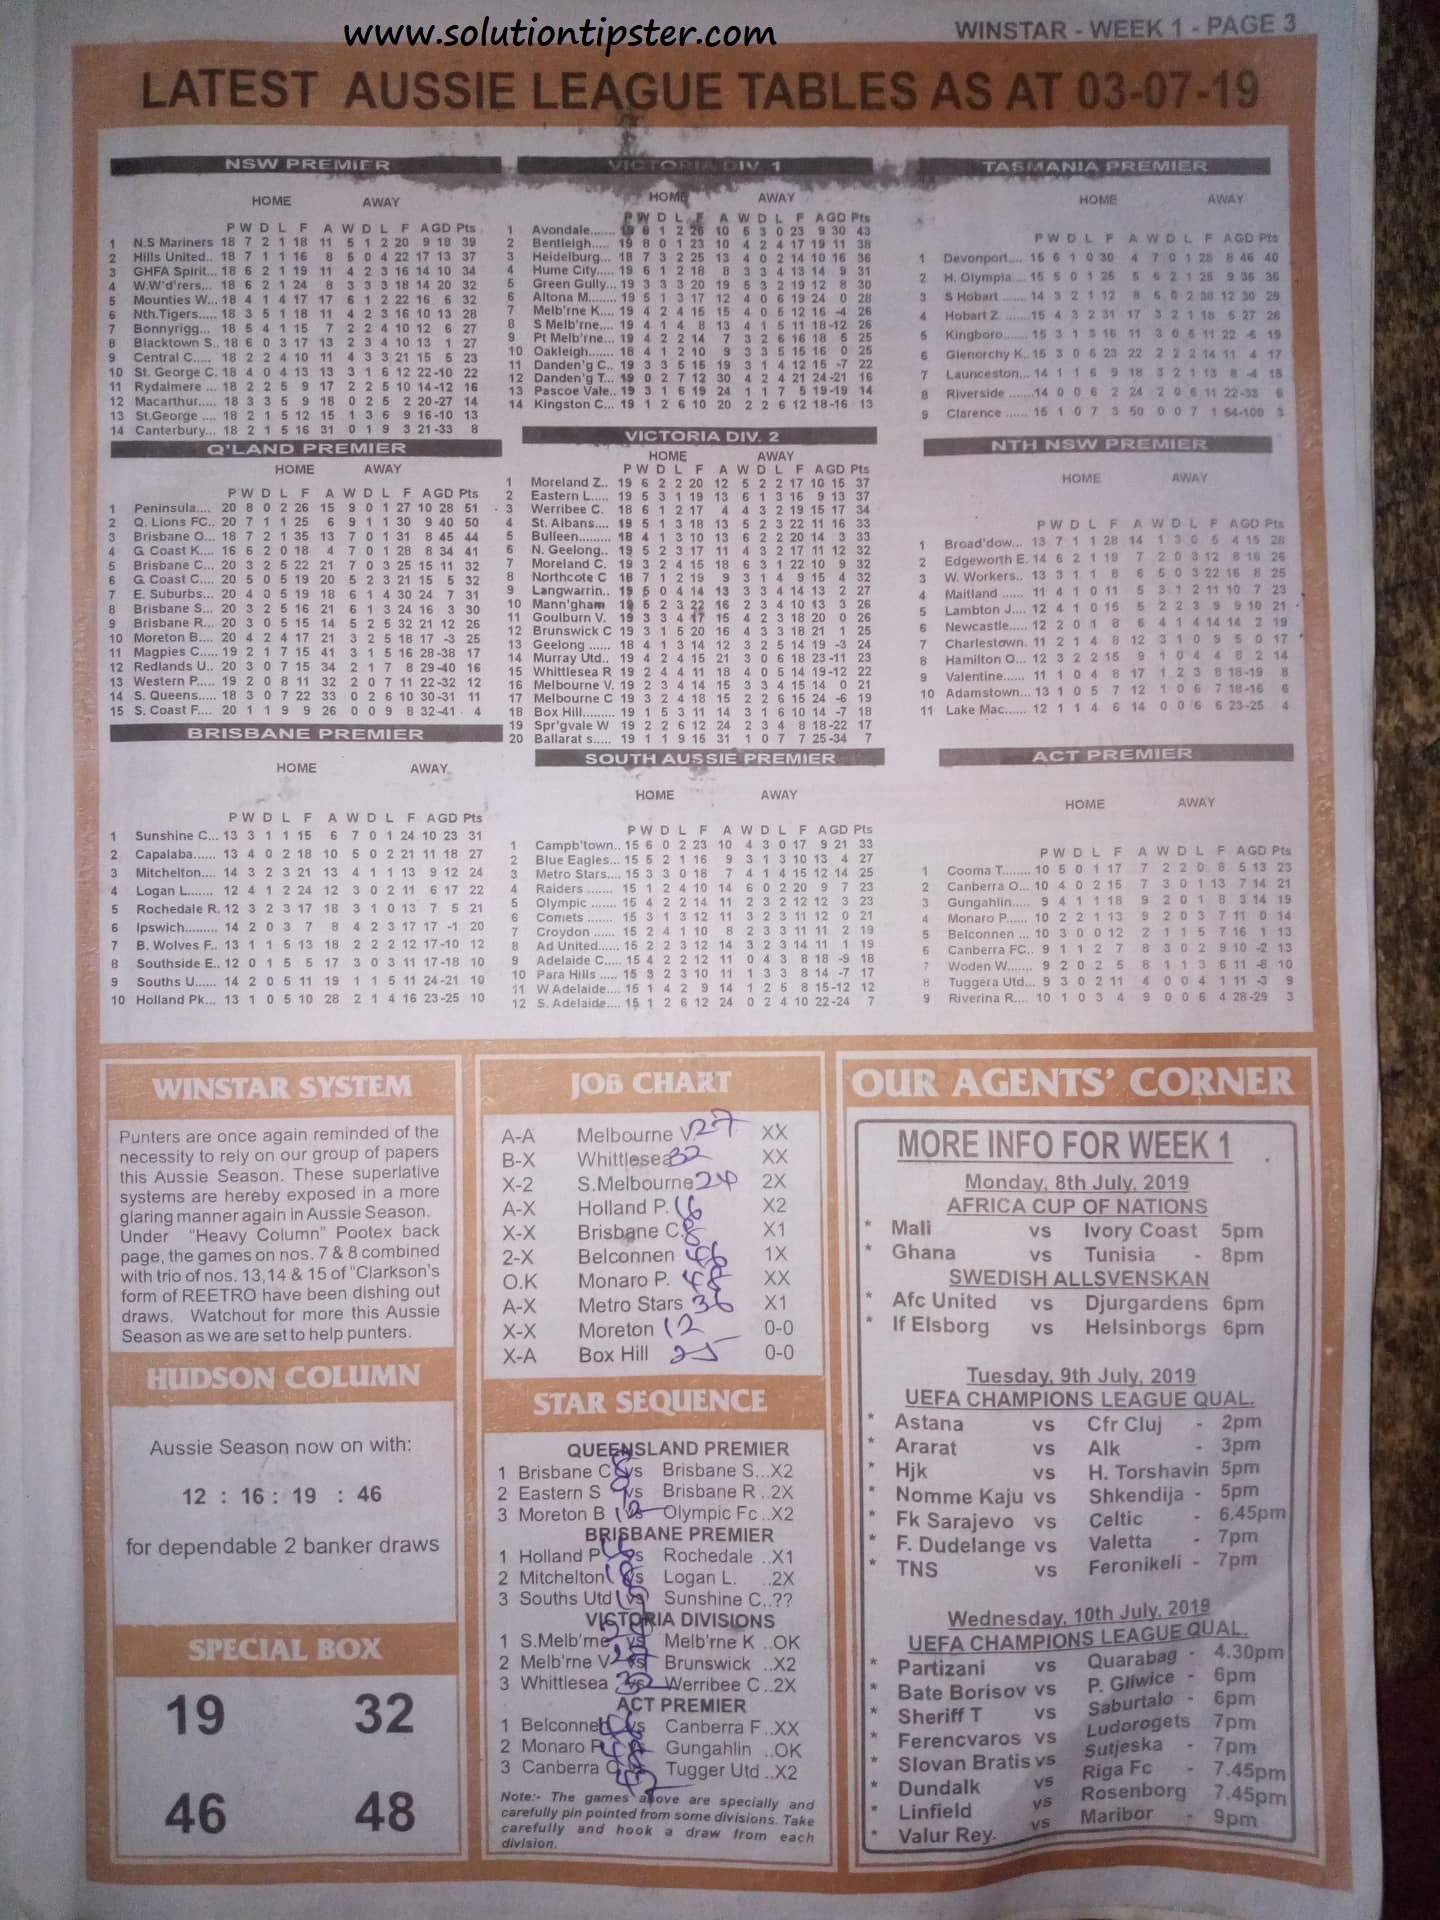 www.solutiontipster.com
WINSTAR - WEEK 1 - PAGE 3
LATEST AUSSIE LEAGUE TABLES AS AT 03-07-19
NSW PREMIER
HOME AWAY
P W D L F A W D L F A GD Pts
1 N.S Mariners 18 7 2 1 18 11 5 1 2 20 9 18 39
2 Hills United.. 18 7 1 1 16 8 5 0 4 22 17 13 37
3 GHFA Spirit... 18 6 2 1 19 11 4 2 3 16 14 10 34
4 W.W'd'rers,... 18 6 2 1 24 8 3 3 3 18 14 20 32
5 Mounties W... 18 4 1 4 17 17 6 1 2 22 16 6 32
6 Nth.Tigers.... 18 3 5 1 18 11 4 2 3 16 10 13 28
7 Bonnyrigg... 18 5 4 1 15 7 2 2 4 10 12 6 27
8 Blacktown S.. 18 6 0 3 17 13 2 3 4 10 13 1 27
9 Central C..... 18 2 2 4 10 11 4 3 3 21 15 5 23
10 St. George C. 18 4 0 4 13 13 3 1 6 12 22 -10 22
11 Rydalmere ... 18 2 2 5 9 17 2 2 5 10 14 -12 16
12 Macarthur.... 18 3 3 5 9 18 0 2 5 2 20 -27 14
13 St.George .... 18 2 1 5 12 15 1 3 6 9 16 -10 13
14 Canterbury... 18 2 1 5 16 31 0 1 9 3 21 -33 8
Q'LAND PREMIER
HOME AWAY
P W D L F A W D L F A GD Pts
1 Peninsula.... 20 8 0 2 26 15 9 0 1 27 10 28 51
2 Q. Lions FC.. 20 7 1 1 25 6 9 1 1 30 9 40 50
3 Brisbane O... 18 7 2 1 35 13 7 0 1 31 8 45 44
4 G. Coast K.... 16 6 2 0 18 4 7 0 1 28 8 34 41
5 Brisbane C... 20 3 2 5 22 21 7 0 3 25 15 11 32
6 G. Coast C.... 20 5 0 5 19 20 5 2 3 21 15 5 32
7 E. Suburbs... 20 4 0 5 19 18 6 1 4 30 24 7 31
8 Brisbane S... 20 3 2 5 16 21 6 1 3 24 16 3 30
9 Brisbane R... 20 3 0 5 15 14 5 2 5 32 21 12 26
10 Moreton B.... 20 4 2 4 17 21 3 2 5 18 17 -3 25
11 Magpies C.... 19 2 1 7 15 41 3 1 5 16 28 -38 17
12 Redlands U.. 20 3 0 7 15 34 2 1 7 8 29 -40 16
13 Western P..... 19 2 0 8 11 32 2 0 7 11 22 -32 12
14 S. Queens..... 18 3 0 7 22 33 0 2 6 10 30 -31 11
15 S. Coast F.... 20 1 1 9 9 26 0 0 9 8 32 -41 4
BRISBANE PREMIER
HOME AWAY
P W D L F A W D L F A GD Pts
1 Sunshine C... 13 3 1 1 15 6 7 0 1 24 10 23 31
2 Capalaba...... 13 4 0 2 18 10 5 0 2 21 11 18 27
3 Mitchelton.... 14 3 2 3 21 13 4 1 1 13 9 12 24
4 Logan L....... 12 4 1 2 24 12 3 0 2 11 6 17 22
5 Rochedale R. 12 3 2 3 17 18 3 1 0 13 7 5 21
6 Ipswich......... 14 2 0 3 7 8 4 2 3 17 17 -1 20
7 B. Wolves F.. 13 1 1 5 13 18 2 2 2 12 17 -10 12
8 Southside E.. 12 0 1 5 5 17 3 0 3 11 17 -18 10
9 Souths U...... 14 2 0 5 11 19 1 1 5 11 24 -21 10
10 Holland Pk... 13 1 0 5 10 28 2 1 4 16 23 -25 10
VICTORIA DIV. 1
HOME AWAY
P W D L F A W D L F A GD Pts
1 Avondale.......
2 Bentleigh..... 19 8 0 1 23 10 4 2 4 17 19 11 38
3 Heidelburg... 18 7 3 2 25 13 4 0 2 14 10 16 36
4 Hume City..... 19 6 1 2 18 8 3 3 4 13 14 9 31
5 Green Gully... 19 3 3 3 20 19 5 3 2 19 12 8 30
6 Altona M....... 19 5 1 3 17 12 4 0 6 19 24 0 28
7 Melb'rne K.... 19 4 2 4 15 15 4 0 5 12 16 -4 26
8 S Melb'rne.... 19 4 1 4 8 13 4 1 5 11 18 -12 26
9 Pt Melb'rne... 19 4 2 2 14 7 3 2 6 16 18 5 25
10 Oakleigh....... 18 4 1 2 10 9 3 3 5 15 16 0 25
11 Danden'g C.. 19 3 3 5 15 19 3 1 4 12 15 -7 22
12 Danden'g T... 19 0 2 7 12 30 4 2 4 21 24 -21 16
13 Pascoe Vale.. 19 3 1 6 19 24 1 1 7 5 19 -19 14
14 Kingston C... 19 1 2 6 10 20 2 2 6 12 18 -16 13
VICTORIA DIV. 2
HOME AWAY
P W D L F A W D L F A GD Pts
1 Moreland Z.. 19 6 2 2 20 12 5 2 2 17 10 15 37
2 Eastern L..... 19 5 3 1 19 13 6 1 3 16 9 13 37
3 Werribee C. 18 6 1 2 17 4 4 3 2 19 15 17 34
4 St. Albans.... 19 5 1 3 18 13 5 2 3 22 11 16 33
5 Bulleen........ 18 4 1 3 10 13 6 2 2 20 14 3 33
6 N. Geelong.. 19 5 2 3 17 11 4 3 2 17 11 12 32
7 Moreland C. 19 3 2 4 15 18 6 3 1 22 10 9 32
8 Northcote C 18 7 1 2 19 9 3 1 4 9 15 4 32
9 Langwarrin.. 19 5 0 4 14 13 3 3 4 14 13 2 27
10 Mann'gham 19 5 2 3 22 16 2 3 4 10 13 3 26
11 Goulburn V. 19 3 3 4 17 15 4 2 3 18 20 0 26
12 Brunswick C 19 3 1 5 20 16 4 3 3 18 21 1 25
13 Geelong ...... 18 4 1 3 14 12 3 2 5 14 19 -3 24
14 Murray Utd.. 19 4 2 4 15 21 3 0 6 18 23 -11 23
15 Whittlesea R 19 2 4 4 11 18 4 0 5 14 19 -12 22
16 Melbourne V. 19 2 3 4 14 15 3 3 4 15 14 0 21
17 Melbourne C 19 3 2 4 18 15 2 2 6 15 24 -6 19
18 Box Hill......... 19 1 5 3 11 14 3 1 6 10 14 -7 18
19 Spr'gvale W 19 2 2 6 12 24 2 3 4 8 18 -22 17
20 Ballarat s..... 19 1 1 9 15 31 1 0 7 7 25 -34 7
SOUTH AUSSIE PREMIER
HOME AWAY
P W D L F A W D L F A GD Pts
1 Campb'town.. 15 6 0 2 23 10 4 3 0 17 9 21 33
2 Blue Eagles... 15 5 2 1 16 9 3 1 3 10 13 4 27
3 Metro Stars.... 15 3 3 0 18 7 4 1 4 15 12 14 25
4 Raiders ....... 15 1 2 4 10 14 6 0 2 20 9 7 23
5 Olympic ...... 15 4 2 2 14 11 2 3 2 12 12 3 23
6 Comets ....... 15 3 1 3 12 11 3 2 3 11 12 0 21
7 Croydon ...... 15 2 4 1 10 8 2 3 3 11 11 2 19
8 Ad United...... 15 2 2 3 12 14 3 2 3 14 11 1 19
9 Adelaide C.... 15 4 2 2 12 11 0 4 3 8 18 -9 18
10 Para Hills .... 15 3 2 3 10 11 1 3 3 8 14 -7 17
11 W Adelaide.... 15 1 4 2 9 14 1 2 5 8 15 -12 12
12 S. Adelaide.... 15 1 2 6 12 24 0 2 4 10 22 -24 7
TASMANIA PREMIER
HOME AWAY
P W D L F A W D L F A GD Pts
1 Devonport..... 15 6 1 0 30 4 7 0 1 28 8 46 40
2 H. Olympia....
3 S Hobart ....... 14 3 2 1 12 8
4 Hobart Z ...... 15 4 3 2 31 17 3 2 1 18 5 27 26
5 Kingboro.......
6 Glenorchy K.. 15 3 0 5 23 22 2 2 2 14 11 4 17
7 Launceston...
8 Riverside .......
9 Clarence ...... 15 1 0 7 3 50 0 0 7 1 54 -100 3
NTH NSW PREMIER
HOME AWAY
P W D L F A W D L F A GD Pts
1 Broad'dow... 13 7 1 1 28 14 1 3 0 5 4 15 28
2 Edgeworth E. 14 6 2 1 19 7 2 0 3 12 8 16 26
3 W. Workers.. 13 3 1 1 8 6 5 0 3 22 16 8 25
4 Maitland ...... 11 4 1 0 11 5 3 1 2 11 10 7 23
5 Lambton J.... 12 4 1 0 15 5 2 2 3 9 9 10 21
6 Newcastle..... 12 2 0 1 8 6 4 1 4 14 14 2 19
7 Charlestown. 11 2 1 4 8 12 3 1 0 9 5 0 17
8 Hamilton O... 12 3 2 2 15 9 1 0 4 4 8 2 14
9 Valentine...... 11 1 0 4 8 17 1 2 3 8 18 -19 8
10 Adamstown... 13 1 0 5 7 12 1 0 6 7 18 -16 6
11 Lake Mac...... 12 1 1 4 6 14 0 0 6 6 23 -25 4
ACT PREMIER
HOME AWAY
P W D L F A W D L F A GD Pts
1 Cooma T........ 10 5 0 1 17 7 2 2 0 8 5 13 23
2 Canberra O... 10 4 0 2 15 7 3 0 1 13 7 14 21
3 Gungahlin..... 9 4 1 1 18 9 2 0 1 8 3 14 19
4 Monaro P...... 10 2 2 1 13 9 2 0 3 7 11 0 14
5 Belconnen ... 10 3 0 0 12 2 1 1 5 7 16 1 13
6 Canberra FC.. 9 1 1 2 7 8 3 0 2 9 10 -2 13
7 Woden W....... 9 2 0 2 5 8 1 1 3 6 11 -8 10
8 Tuggera Utd... 9 3 0 2 11 4 0 0 4 1 11 -3 9
9 Riverina R.... 10 1 0 3 4 9 0 0 6 4 28 -29 3
WINSTAR SYSTEM
Punters are once again reminded of the
necessity to rely on our group of papers
this Aussie Season. These superlative
systems are hereby exposed in a more
glaring manner again in Aussie Season.
Under "Heavy Column" Pootex back
page, the games on nos. 7 & 8 combined
with trio of nos. 13,14 & 15 of "Clarkson's
form of REETRO have been dishing out
draws. Watchout for more this Aussie
Season as we are set to help punters.
HUDSON COLUMN
Aussie Season now on with:
12 : 16 : 19 : 46
for dependable 2 banker draws
SPECIAL BOX
19 32
46 48
JOB CHART
A-A Melbourne V. 27 XX
B-X Whittlesea 32 XX
X-2 S.Melbourne 24 2X
A-X Holland P. 16 X2
X-X Brisbane C. 8 X1
2-X Belconnen 46 1X
O.K Monaro P. 48 XX
A-X Metro Stars 36 X1
X-X Moreton 12 0-0
X-A Box Hill 25 0-0
STAR SEQUENCE
QUEENSLAND PREMIER
1 Brisbane C 8 vs Brisbane S...X2
2 Eastern S 9 vs Brisbane R ..2X
3 Moreton B 12 vs Olympic Fc ..X2
BRISBANE PREMIER
1 Holland P 16 vs Rochedale ..X1
2 Mitchelton 18 vs Logan L. ..2X
3 Souths Utd 19 vs Sunshine C..??
VICTORIA DIVISIONS
1 S.Melb'rne vs Melb'rne K ..OK
2 Melb'rne V 27 vs Brunswick ..X2
3 Whittlesea 32 vs Werribee C ..2X
ACT PREMIER
1 Belconnen 46 vs Canberra F ..XX
2 Monaro P 48 vs Gungahlin ..OK
3 Canberra O vs Tugger Utd ..X2
Note:- The games above are specially and
carefully pin pointed from some divisions. Take
carefully and hook a draw from each
division.
OUR AGENTS' CORNER
MORE INFO FOR WEEK 1
Monday, 8th July, 2019
AFRICA CUP OF NATIONS
* Mali vs Ivory Coast 5pm
* Ghana vs Tunisia - 8pm
SWEDISH ALLSVENSKAN
* Afc United vs Djurgardens 6pm
* If Elsborg vs Helsinborgs 6pm
Tuesday, 9th July, 2019
UEFA CHAMPIONS LEAGUE QUAL.
* Astana vs Cfr Cluj - 2pm
* Ararat vs Alk - 3pm
* Hjk vs H. Torshavin 5pm
* Nomme Kaju vs Shkendija - 5pm
* Fk Sarajevo vs Celtic - 6.45pm
* F. Dudelange vs Valetta - 7pm
* TNS vs Feronikeli - 7pm
Wednesday, 10th July, 2019
UEFA CHAMPIONS LEAGUE QUAL.
* Partizani vs Quarabag - 4.30pm
* Bate Borisov vs P. Gliwice - 6pm
* Sheriff T vs Saburtalo - 6pm
* Ferencvaros vs Ludorogets 7pm
* Slovan Bratis vs Sutjeska - 7pm
* Dundalk vs Riga Fc - 7.45pm
* Linfield vs Rosenborg 7.45pm
* Valur Rey. vs Maribor - 9pm